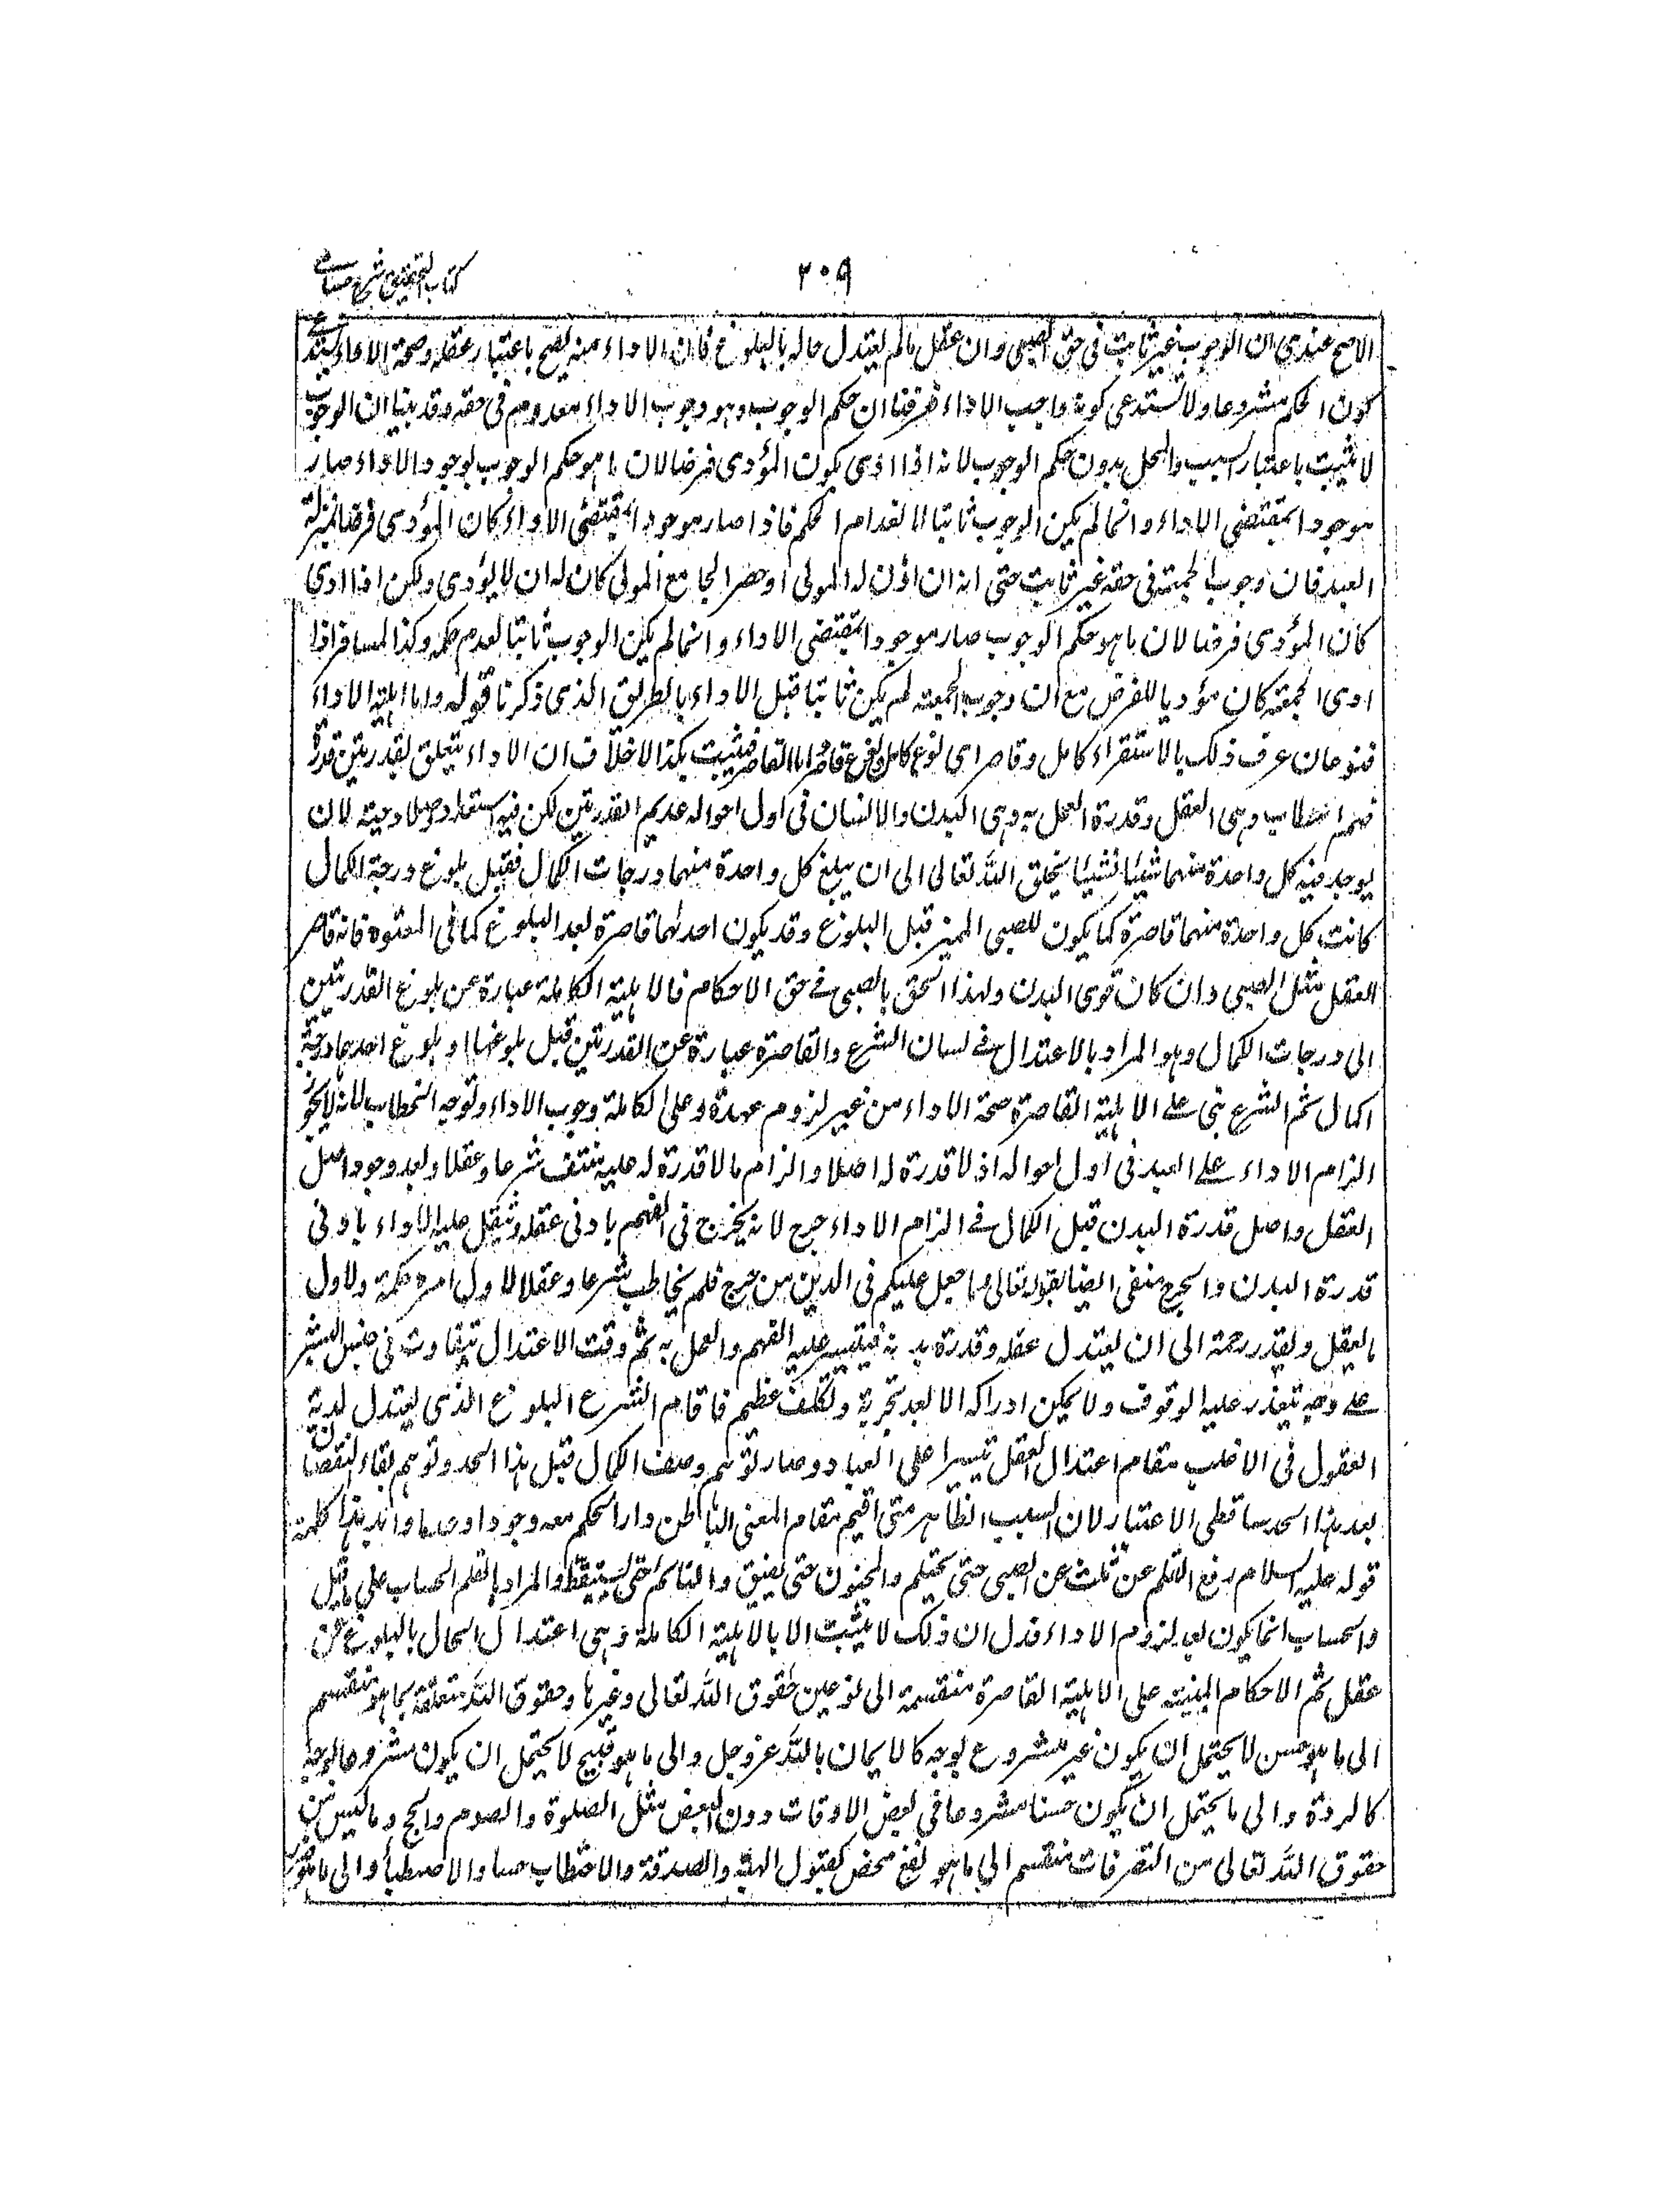 كتاب التحقيق شرح حسامي
٣٠٩
الاصح عندي ان الوجوب غير ثابت في حق الصبي وان عقل ما لم يعتدل حاله بالبلوغ فان الاداء منه يصح باعتبار عقله وصحة الاداء يستدعي
كون الحكم مشروعا ولا تستدعي كونه واجب الاداء فعرفنا ان حكم الوجوب وهو وجوب الاداء معدوم في حقه وقد بينا ان الوجوب
لا يثبت باعتبار السبب والمحل بدون حكم الوجوب لانه اذا ادى يكون المؤدى فرضا لان ما هو حكم الوجوب بوجود الاداء صار
موجودا بمقتضى الاداء وانما لم يكن الوجوب ثابتا لانعدام الحكم فاذا صار موجودا بمقتضى الاداء كان المؤدى فرضا بمنزلة
العبد فان وجوب الجمعة في حقه غير ثابت حتى انه ان اذن له المولى او حضر الجامع مع المولى كان له ان لا يؤدي ولكن اذا ادى
كان المؤدى فرضا لان ما هو حكم الوجوب صار موجودا بمقتضى الاداء وانما لم يكن الوجوب ثابتا لعدم حكمه وكذا المسافر اذا
ادى الجمعة كان مؤديا للفرض مع ان وجوب الجمعة لم يكن ثابتا قبل الاداء بالطريق الذي ذكرنا قوله واما اهلية الاداء
فنوعان عرف ذلك بالاستقراء كامل وقاصر اي نوع كامل ونوع قاصر اما القاصر فيثبت بكذا لاخلاف ان الاداء يتعلق بقدرتين قدرة
فهم الخطاب وهي العقل وقدرة العمل به وهي البدن والانسان في اول احواله عديم القدرتين لكن فيه استعداد وصلاحية لان
يوجد فيه كل واحدة منهما شيئا فشيئا بخلق الله تعالى الى ان يبلغ كل واحدة منهما درجات الكمال فقبل بلوغ درجة الكمال
كانت كل واحدة منهما قاصرة كما يكون للصبي المميز قبل البلوغ وقد يكون احدهما قاصرة بعد البلوغ كما في المعتوه فانه قاصر
العقل مثل الصبي وان كان قوي البدن ولهذا الحق بالصبي في حق الاحكام فالاهلية الكاملة عبارة عن بلوغ القدرتين
الى درجات الكمال وهو المراد بالاعتدال في لسان الشرع والقاصرة عبارة عن القدرتين قبل بلوغهما او بلوغ احدهما درجة
الكمال ثم الشرع بنى على الاهلية القاصرة صحة الاداء من غير لزوم عهدة وعلى الكاملة وجوب الاداء وتوجه الخطاب لانه لا يجوز
الزام الاداء على العبد في اول احواله اذ لا قدرة له اصلا والزام ما لا قدرة له عليه منتف شرعا وعقلا وبعد وجود اصل
العقل واصل قدرة البدن قبل الكمال في الزام الاداء حرج لانه يحرج في الفهم بادنى عقله ويثقل عليه الاداء بادنى
قدرة البدن والحرج منفي ايضا بقوله تعالى وما جعل عليكم في الدين من حرج فلم يخاطب شرعا وعقلا لاول امره حكمة ولاول
ما يعقل ويقدر رحمة الى ان يعتدل عقله وقدرة بدنه فيتيسر عليه الفهم والعمل به ثم وقت الاعتدال يتفاوت في جنس البشر
على وجه يتعذر عليه الوقوف ولا يمكن ادراكه الا بعد تجربة وتكلف عظيم فاقام الشرع البلوغ الذي يعتدل لديه
العقول في الاغلب مقام اعتدال العقل تيسيرا على العباد وصار توهم وصف الكمال قبل هذا الحد وتوهم بقاء النقصان
بعد هذا الحد ساقطي الاعتبار لان السبب الظاهر متى اقيم مقام المعنى الباطن دار الحكم معه وجودا وعدما وايد هذا كلمه
قوله عليه السلام رفع القلم عن ثلث عن الصبي حتى يحتلم والمجنون حتى يفيق والنائم حتى يستيقظ والمراد بالقلم الحساب على ما قيل
والحساب انما يكون بعد لزوم الاداء فدل ان ذلك لا يثبت الا بالاهلية الكاملة وهي اعتدال الحال بالبلوغ عن
عقل ثم الاحكام المبنية على الاهلية القاصرة منقسمة الى نوعين حقوق الله تعالى وغيرها وحقوق الله متعلقة بما هو منقسم
الى ما هو حسن لا يحتمل ان يكون غير مشروع بوجه كالايمان بالله عز وجل والى ما هو قبيح لا يحتمل ان يكون مشروعا بوجه
كالردة والى ما يحتمل ان يكون حسنا مشروعا في بعض الاوقات دون البعض مثل الصلوة والصوم والحج وما ليس من
حقوق الله تعالى من التصرفات منقسم الى ما هو نفع محض كقبول الهبة والصدقة والاحتطاب والاصطياد والى ما هو